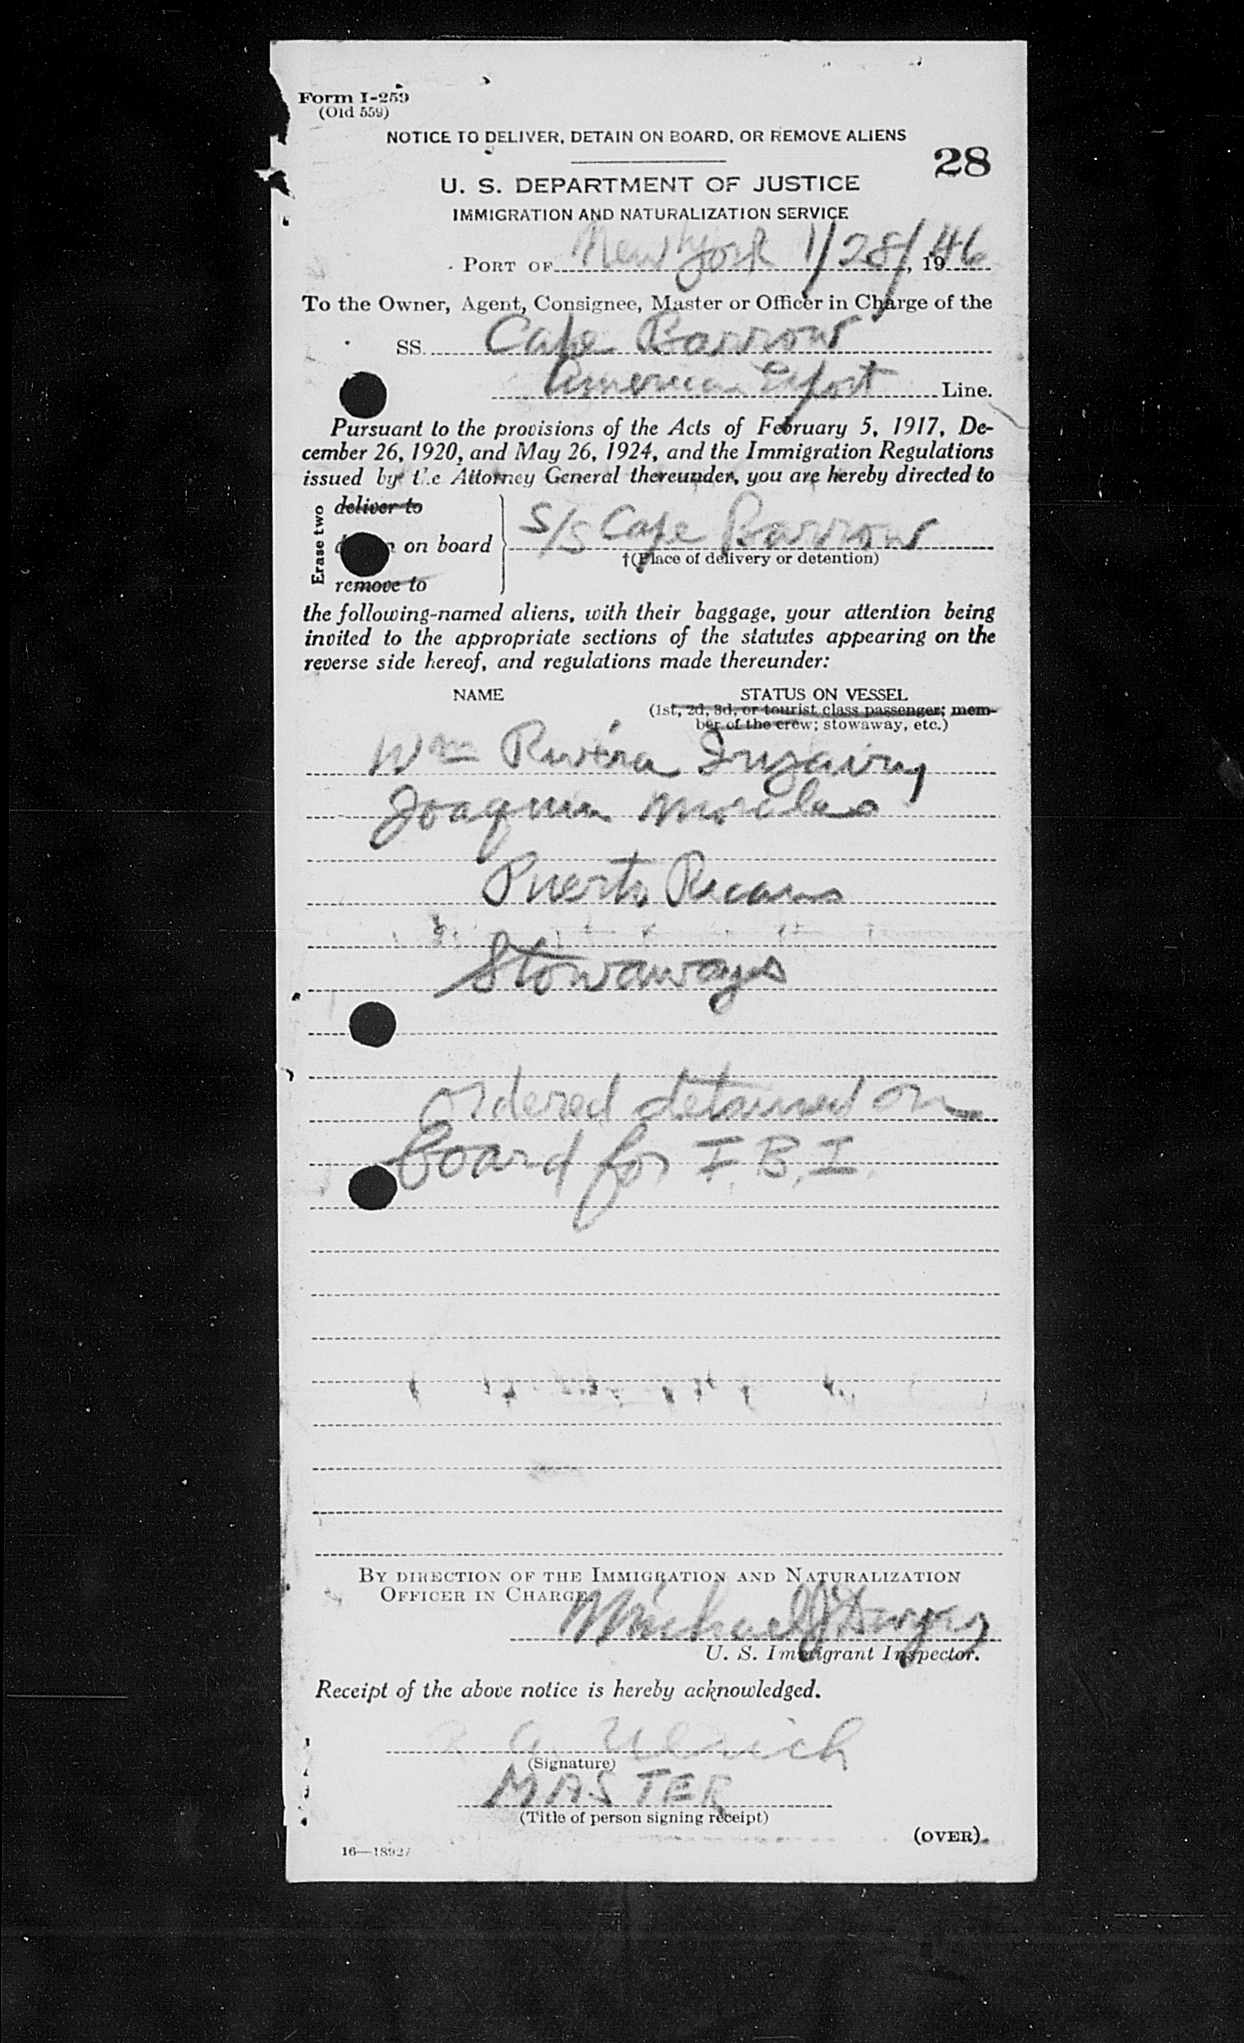 Form I-259
(Old 559)
NOTICE TO DELIVER, DETAIN ON BOARD, OR REMOVE ALIENS
28
U. S. DEPARTMENT OF JUSTICE
IMMIGRATION AND NATURALIZATION SERVICE
PORT OF New York 1/28/46, 1946
To the Owner, Agent, Consignee, Master or Officer in Charge of the
SS. Cape Barrow
American Export Line.
Pursuant to the provisions of the Acts of February 5, 1917, De-
cember 26, 1920, and May 26, 1924, and the Immigration Regulations
issued by the Attorney General thereunder, you are hereby directed to
Erase two
deliver to
on board
remove to
S/S Cape Barrow
†(Place of delivery or detention)
the following-named aliens, with their baggage, your attention being
invited to the appropriate sections of the statutes appearing on the
reverse side hereof, and regulations made thereunder:
NAME STATUS ON VESSEL
(1st, 2d, 3d, or tourist class passenger; mem-
ber of the crew; stowaway, etc.)
Wm Rivera
Joaquin Morales
Puerto Ricans
Stowaways
ordered detained on
board for F.B.I.
BY DIRECTION OF THE IMMIGRATION AND NATURALIZATION
OFFICER IN CHARGE.
Michael J Dwyer
U. S. Immigrant Inspector.
Receipt of the above notice is hereby acknowledged.
Ulrich
(Signature)
MASTER
(Title of person signing receipt)
(OVER)
16—18927